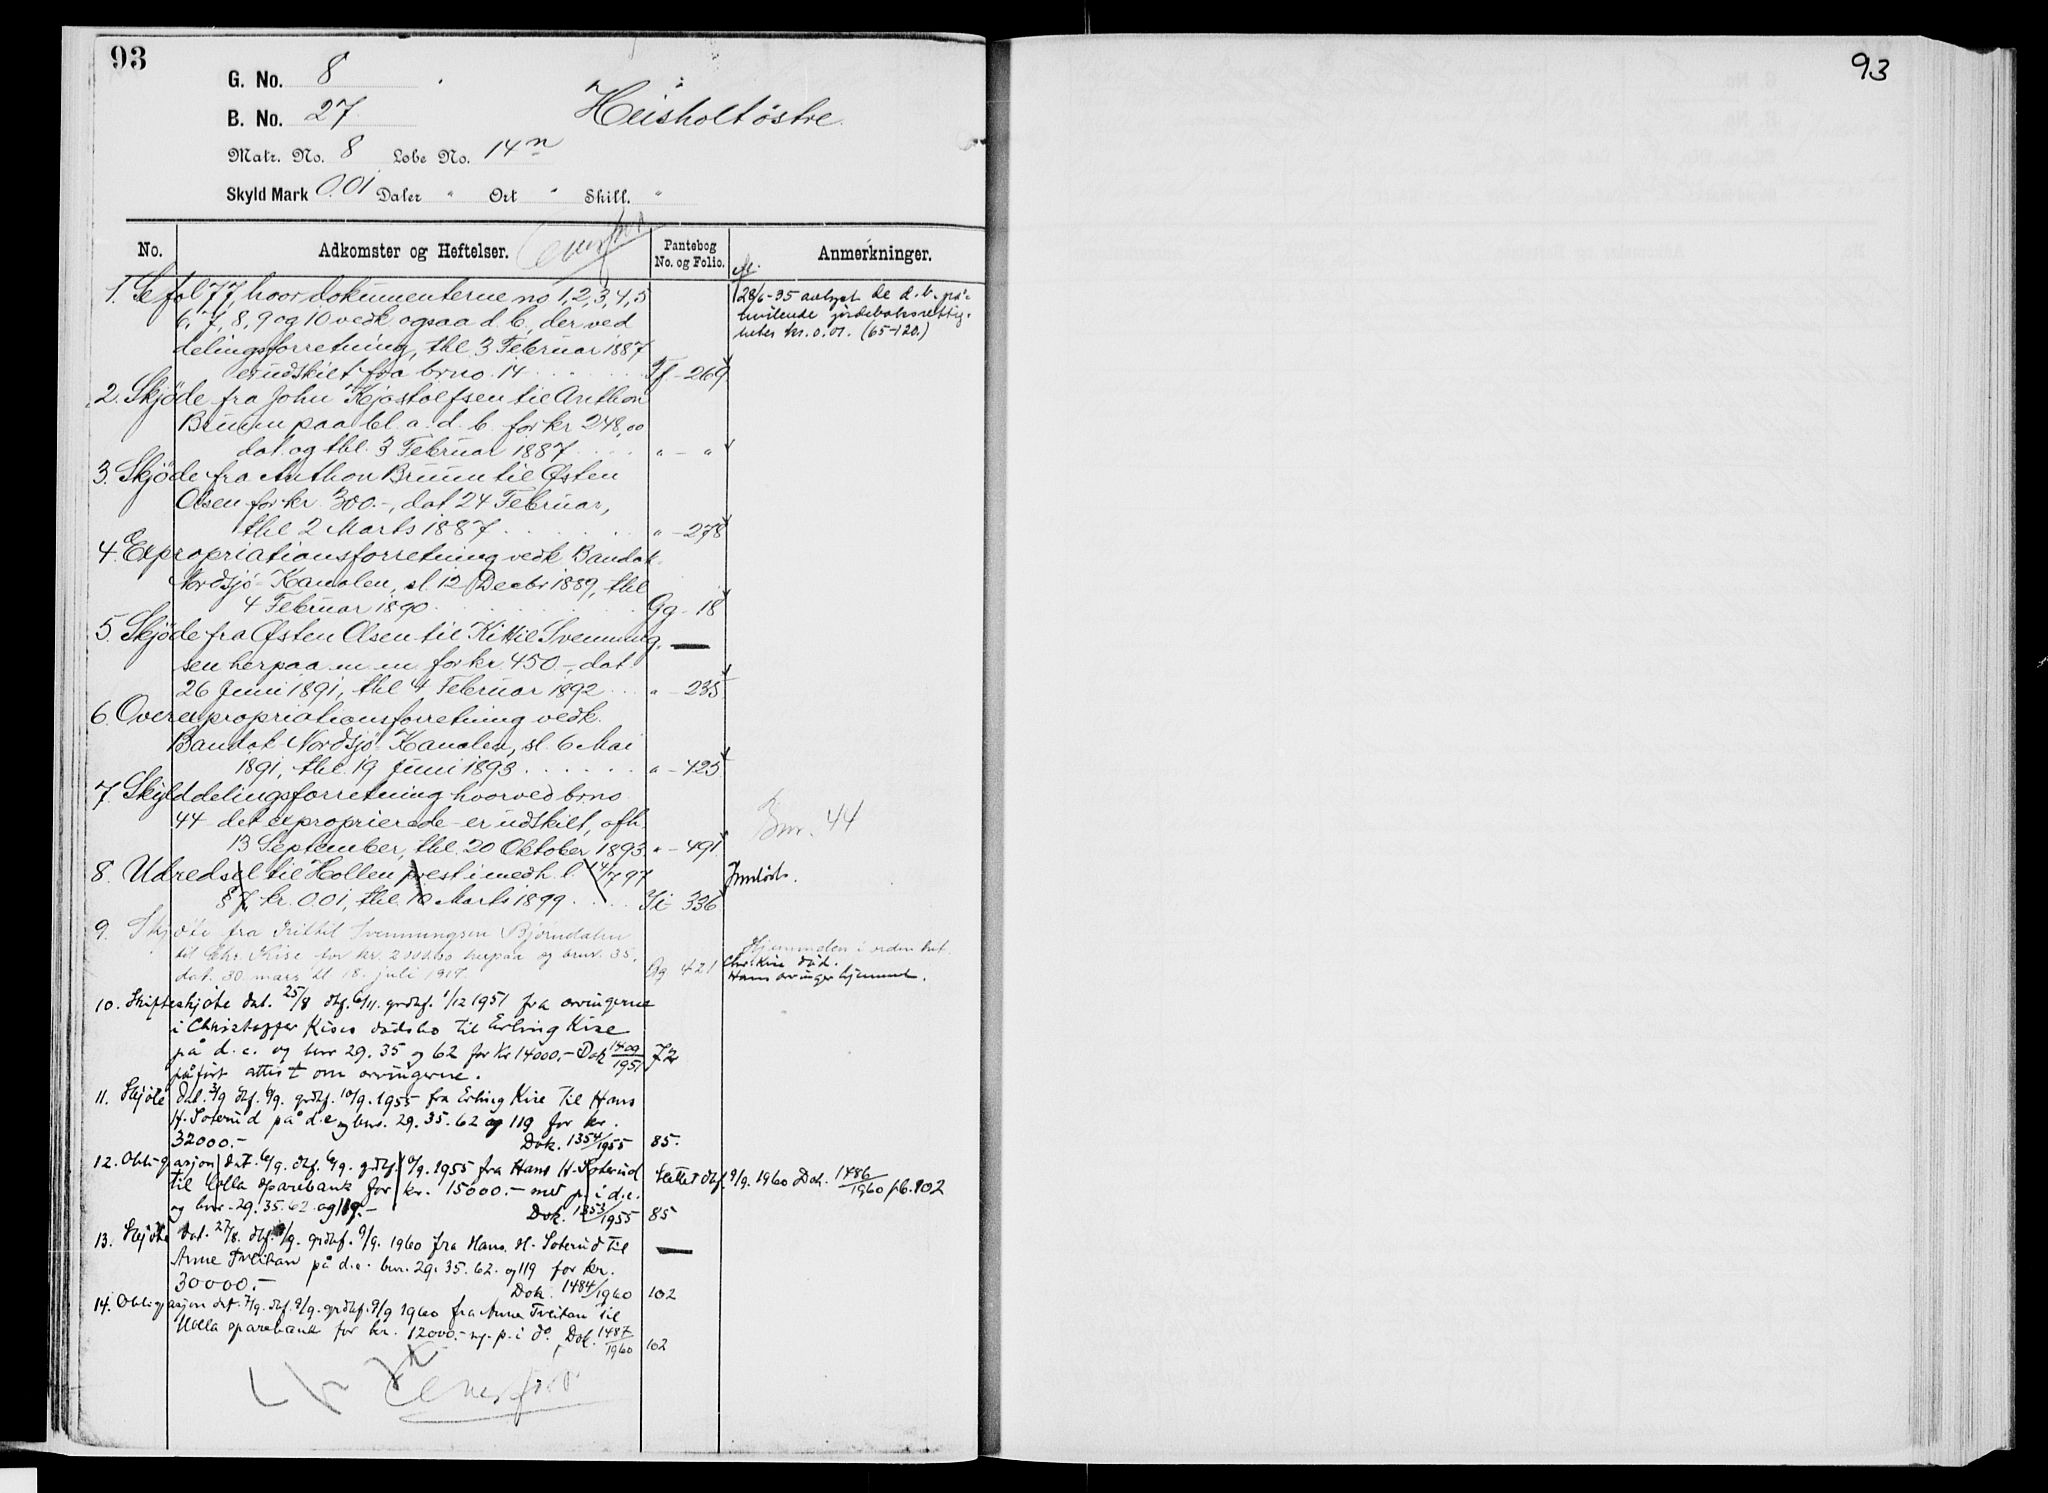 93
G. No. 8
B. No. 27
Heisholt östre
Matr. No. 8 Løbe No. 14 n
Skyld Mark 0.01 Daler " Ort " Skill. "
No. Adkomster og Heftelser. Pantebog No. og Folio. Anmerkninger.
Overført
1. Se fol 77, hvor dokumenterne no 1, 2, 3, 4, 5
6, 7, 8, 9 og 10 vedk ogsaa d. b., der ved
delingsforretning, thl 3 Februar 1887
er udskilt fra brno. 14 Ff - 269
28/6-35 avlyst de d. b. på-
hvilende jordeboksrettig-
heter kr. 0.01. (65-120.)
2. Skjöde fra John Kjöstolfsen til Anthon
Bruun paa bl. a. d. b. for kr 248,00
dat. og thl. 3 Februar 1887 " - "
3. Skjöde fra Anthon Bruun til Østen
Olsen for kr. 300.-, dat 24 Februar,
thl 2 Marts 1887 " - 278
4. Expropriationsforretning vedk Bandak-
Nordsjö-Kanalen, sl. 12 Decbr 1889, thl
4 Februar 1890 Gg - 18
5. Skjöde fra Østen Olsen til Kittil Svennung-
sen herpaa m m for kr 450.-, dat
26 Juni 1891, thl 4 Februar 1892 " - 235
6. Overexpropriationsforretning vedk.
Bandak-Nordsjö-Kanalen, sl. 6 Mai
1891, thl. 19 Juni 1893 " - 425
7. Skylddelingsforretning hvorved brno
44 det exproprierede er udskilt, afh.
13 September, thl. 20 Oktober 1893. " - 491
Bnr. 44
8. Udredsel til Hollen prest i medh. l. 14/7 97
§ 7, kr. 0.01, thl. 10 Marts 1899 Ii 336
Innløst.
9. Skjöte fra Kittil Svennungsen Björndalen
til Chr. Kise for kr. 2000.00 herpaa og bnr. 35,
dat. 30 mars tl 18. juli 1917. Qq 421
Hjemmelen i orden
Chr. Kise död.
Hans arvinger hjemmel.
10. Skifteskjöte dat. 25/8 dbf. 6/11. grdbf. 1/12 1951 fra arvingerne
i Christoffer Kises dödsbo til Erling Kise
på d. e. og bnr 29. 35 og 62 for kr 14000.- Dok 1409/1951 72
påfört attest om arvingerne.
11. Skjöte dat. 3/9 dbf. 6/9. grdbf. 10/9. 1955 fra Erling Kise til Hans
H. Soterud på d. e og bnr. 29. 35. 62 og 119 for kr.
32000.- Dok. 1354/1955 85.
12. Obligasjon dat. 6/9. dbf. 6/9. grdbf. 10/9. 1955 fra Hans H. Soterud
til Holla sparebank for kr. 15000.- med p. i d. e.
og bnr. 29. 35. 62 og 119.- Dok. 1353/1955 85
Slettet dbf. 9/9. 1960 Dok. 1486/1960 pb. 102
13. Skjöte dat. 27/8. dbf. 9/9. grdbf. 9/9. 1960 fra Hans. H. Soterud til
Arne Tveitan på d. e. bnr. 29. 35. 62. og 119 for kr.
30000.- Dok. 1484/1960 102
14. Obligasjon dat. 7/9. dbf. 9/9. grdbf. 9/9 1960 fra Arne Tveitan til
Holla sparebank for kr. 12000.- m. p. i do. Dok. 1487/1960 102
Overført
93